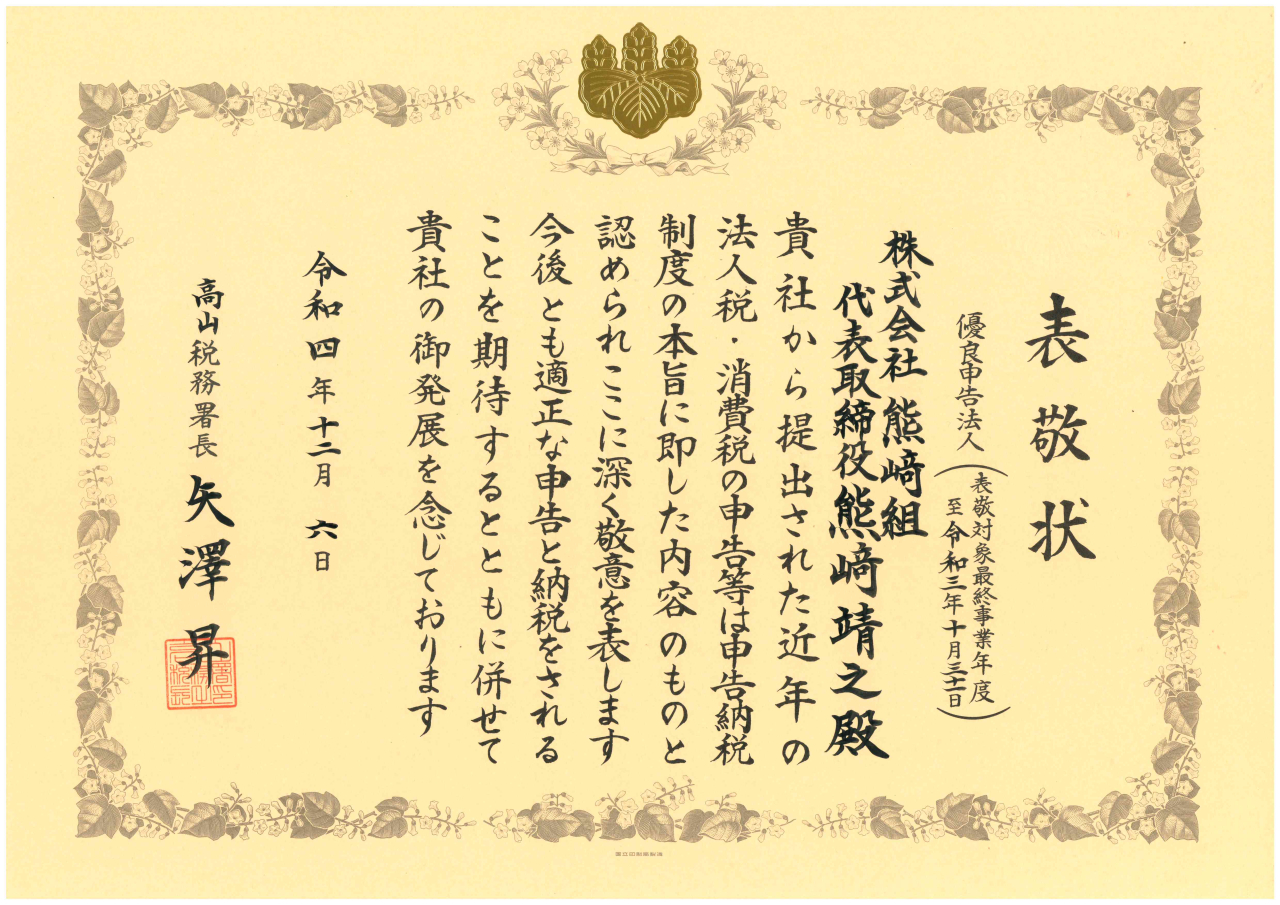 表敬状
優良申告法人(表敬対象最終事業年度
至令和三年十月三十一日)
株式会社 熊﨑組
代表取締役 熊﨑靖之殿
貴社から提出された近年の
法人税・消費税の申告等は申告納税
制度の本旨に即した内容のものと
認められここに深く敬意を表します
今後とも適正な申告と納税をされる
ことを期待するとともに併せて
貴社の御発展を念じております
令和四年十二月六日
高山税務署長 矢澤昇